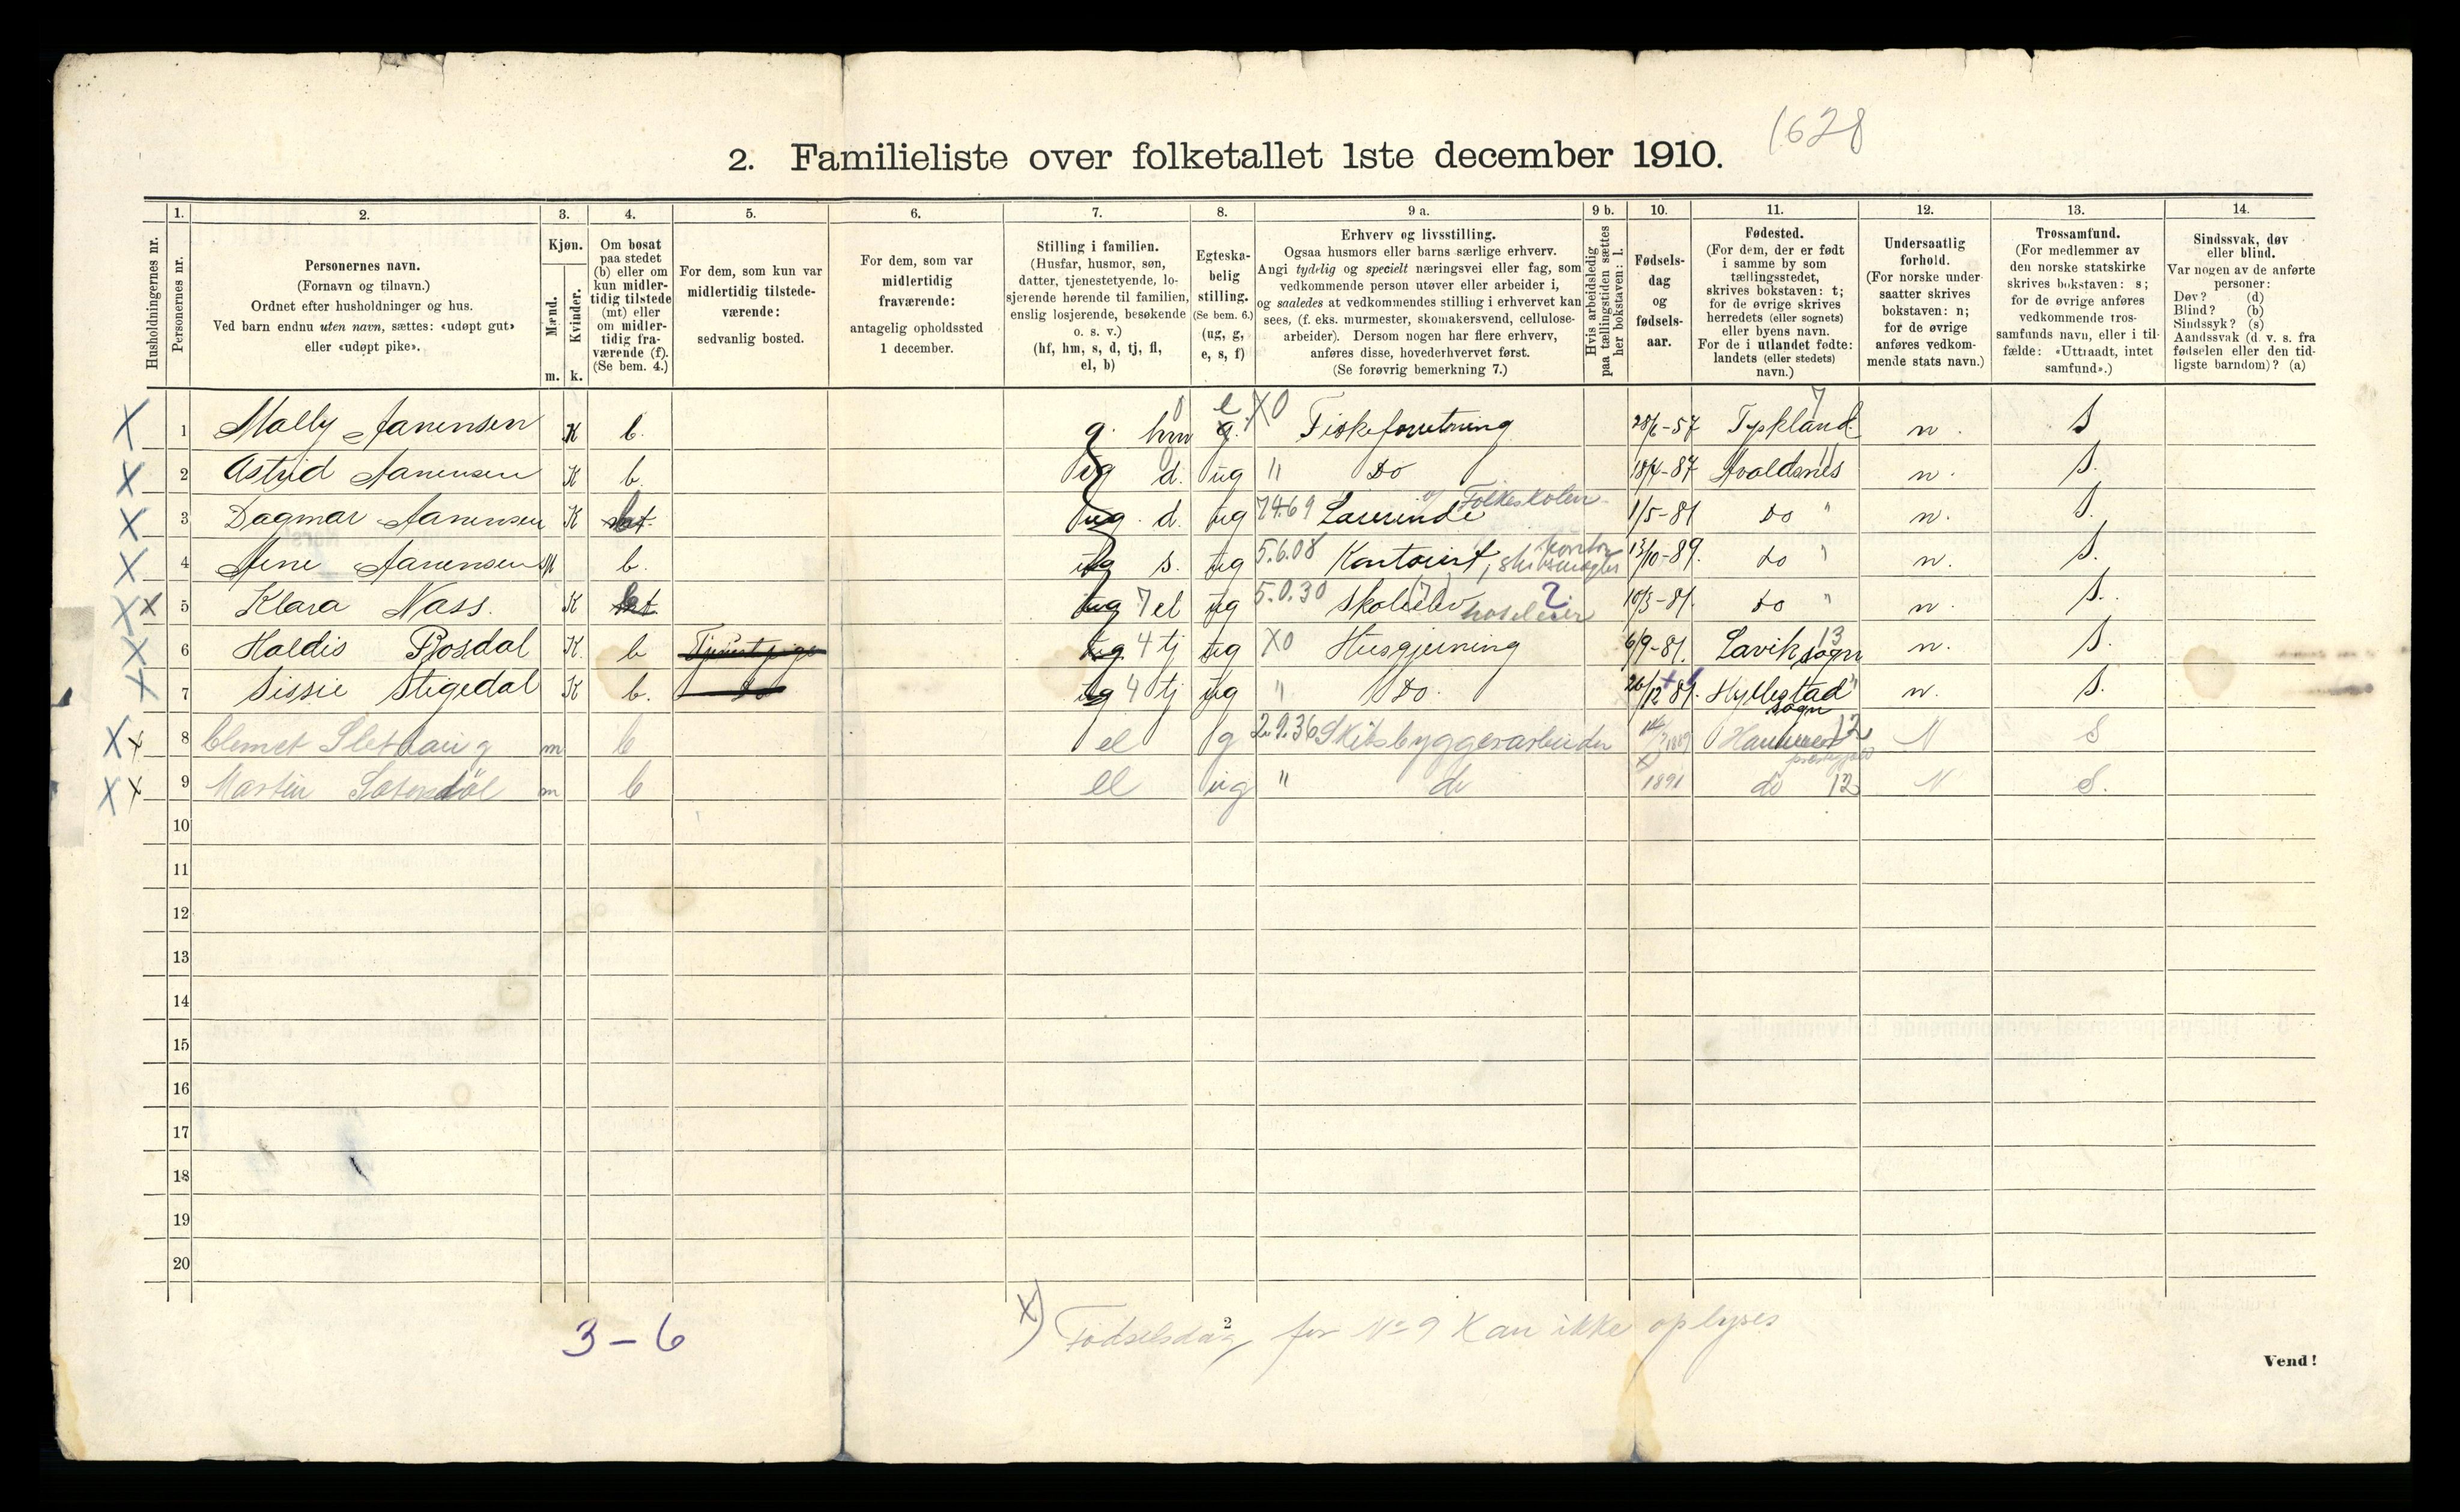 1628
2. Familieliste over folketallet 1ste december 1910.
Husholdningernes nr.
1. 2. 3. 4. 5. 6. 7. 8. 9 a. 9 b. 10. 11. 12. 13. 14.
Personernes nr.
Personernes navn.
(Fornavn og tilnavn.)
Ordnet efter husholdninger og hus.
Ved barn endnu uten navn, sættes: «udøpt gut»
eller «udøpt pike».
Kjøn.
Mænd.
Kvinder.
m. k.
Om bosat
paa stedet
(b) eller om
kun midler-
tidig tilstede
(mt) eller
om midler-
tidig fra-
værende (f).
(Se bem. 4.)
For dem, som kun var
midlertidig tilstede-
værende:
sedvanlig bosted.
For dem, som var
midlertidig
fraværende:
antagelig opholdssted
1 december.
Stilling i familien.
(Husfar, husmor, søn,
datter, tjenestetyende, lo-
sjerende hørende til familien,
enslig losjerende, besøkende
o. s. v.)
(hf, hm, s, d, tj, fl,
el, b)
Egteska-
belig
stilling.
(Se bem. 6.)
(ug, g,
e, s, f)
Erhverv og livsstilling.
Ogsaa husmors eller barns særlige erhverv.
Angi tydelig og specielt næringsvei eller fag, som
vedkommende person utøver eller arbeider i,
og saaledes at vedkommendes stilling i erhvervet kan
sees, (f. eks. murmester, skomakersvend, cellulose-
arbeider). Dersom nogen har flere erhverv,
anføres disse, hovederhvervet først.
(Se forøvrig bemerkning 7.)
Hvis arbeidsledig
paa tællingstiden sættes
her bokstaven: l.
Fødsels-
dag
og
fødsels-
aar.
Fødested.
(For dem, der er født
i samme by som
tællingsstedet,
skrives bokstaven: t;
for de øvrige skrives
herredets (eller sognets)
eller byens navn.
For de i utlandet fødte:
landets (eller stedets)
navn.)
Undersaatlig
forhold.
(For norske under-
saatter skrives
bokstaven: n;
for de øvrige
anføres vedkom-
mende stats navn.)
Trossamfund.
(For medlemmer av
den norske statskirke
skrives bokstaven: s;
for de øvrige anføres
vedkommende tros-
samfunds navn, eller i til-
fælde: «Uttraadt, intet
samfund».)
Sindssvak, døv
eller blind.
Var nogen av de anførte
personer:
Døv? (d)
Blind? (b)
Sindssyk? (s)
Aandssvak (d. v. s. fra
fødselen eller den tid-
ligste barndom)? (a)
X 1 Mally Aanensen K b. g. hm g. e X0 Fiskeforretning 28/6-57 Tyskland 7 n. S
X 2 Astrid Aanensen K b. ug d. ug " Do 18/4-87 Avaldsnes n. S.
X 3 Dagmar Aanensen K mt b ug. d. ug 74.69 Laererinde v/ Folkeskolen 1/5-81 Do " n. S.
X 4 Arne Aanensen M b. ug s. ug 5.6.08 Kontorist, kontor skibsmægler 13/10-89. Do " n. S.
X X 5 Klara Næss. K mt b ug 7 el ug 5.0.30 Skoleelev (7) 2 10/3-81. Do " n. S.
X 6 Haldis Rosdal K. b Tjenstpige ug 4 tj ug X0 Husgjerning 6/9-81. Lavik sogn 13 n. S.
X 7 Sissie Stigedal K b. Do ug 4 tj ug " Do. 26/12 81. Hyllestad sogn " n. S.
X X 8 Clemet Slethaug m b el g 2.9.36 Skibsbyggerarbeider 12 N S
X X 9 Martin m b el ug " do X) 1891 do 12 N S.
10
11
12
13
14
15
16
17
18
19
20
3-6
X) Fødselsdag for No 9 kan ikke oplyses
2
Vend!